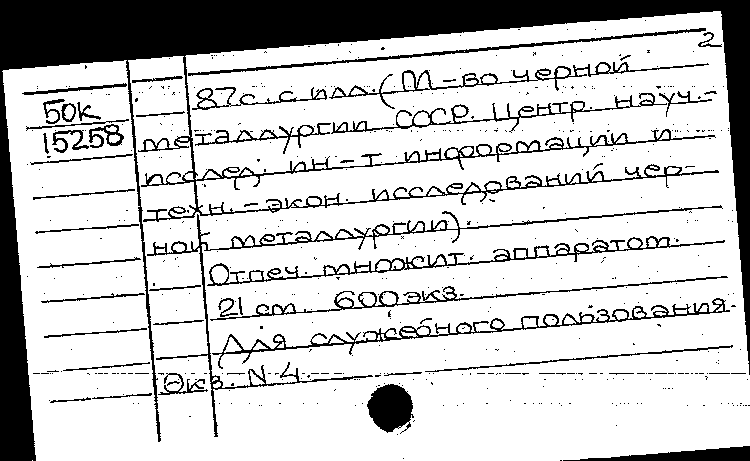 2
50к
15258
87с. с илл. (М-во черной
металлургии СССР. Центр. науч.-
исслед. ин-т информации и
техн.-экон. исследований чер-
ной металлургии).
Отпеч. множит. аппаратом.
21 см. 600 экз.
Для служебного пользования.
Экз. N 4.